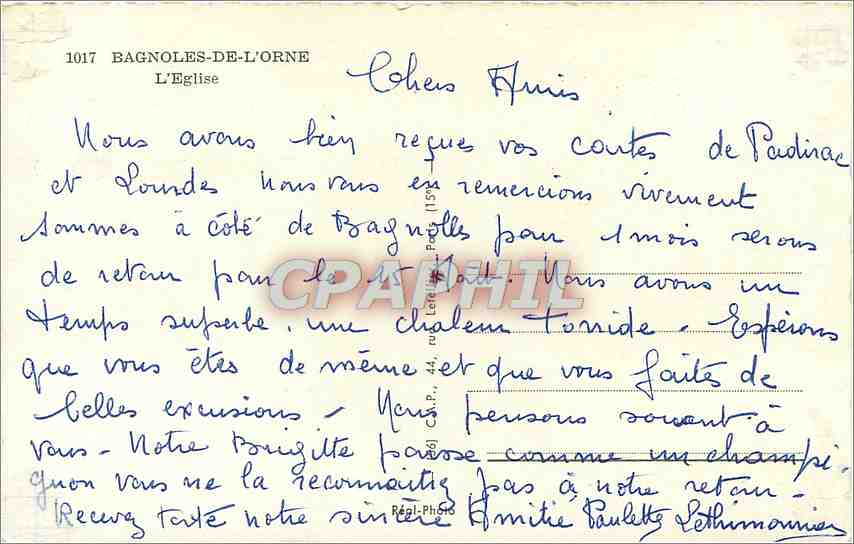 1017 BAGNOLES-DE-L'ORNE
L'Eglise
Chers Amis
Nous avons bien reçues vos cartes de Padirac
et Lourdes nous vous en remercions vivement
Sommes à côté de Bagnolles pour 1 mois serons
de retour pour le 15 Août. Nous avons un
temps superbe, une chaleur torride. Espérons
que vous êtes de même et que vous faites de
belles excusions - Nous pensons souvent à
vous - Notre Brigitte pousse comme un champi-
gnon vous ne la reconnaitrez pas à notre retour -
Recevez toute notre sincère Amitié Paulette Lethimonnier
CPAPHIL
C.A.P., 44, rue Letellier, Paris (15e)
Réal-Photo